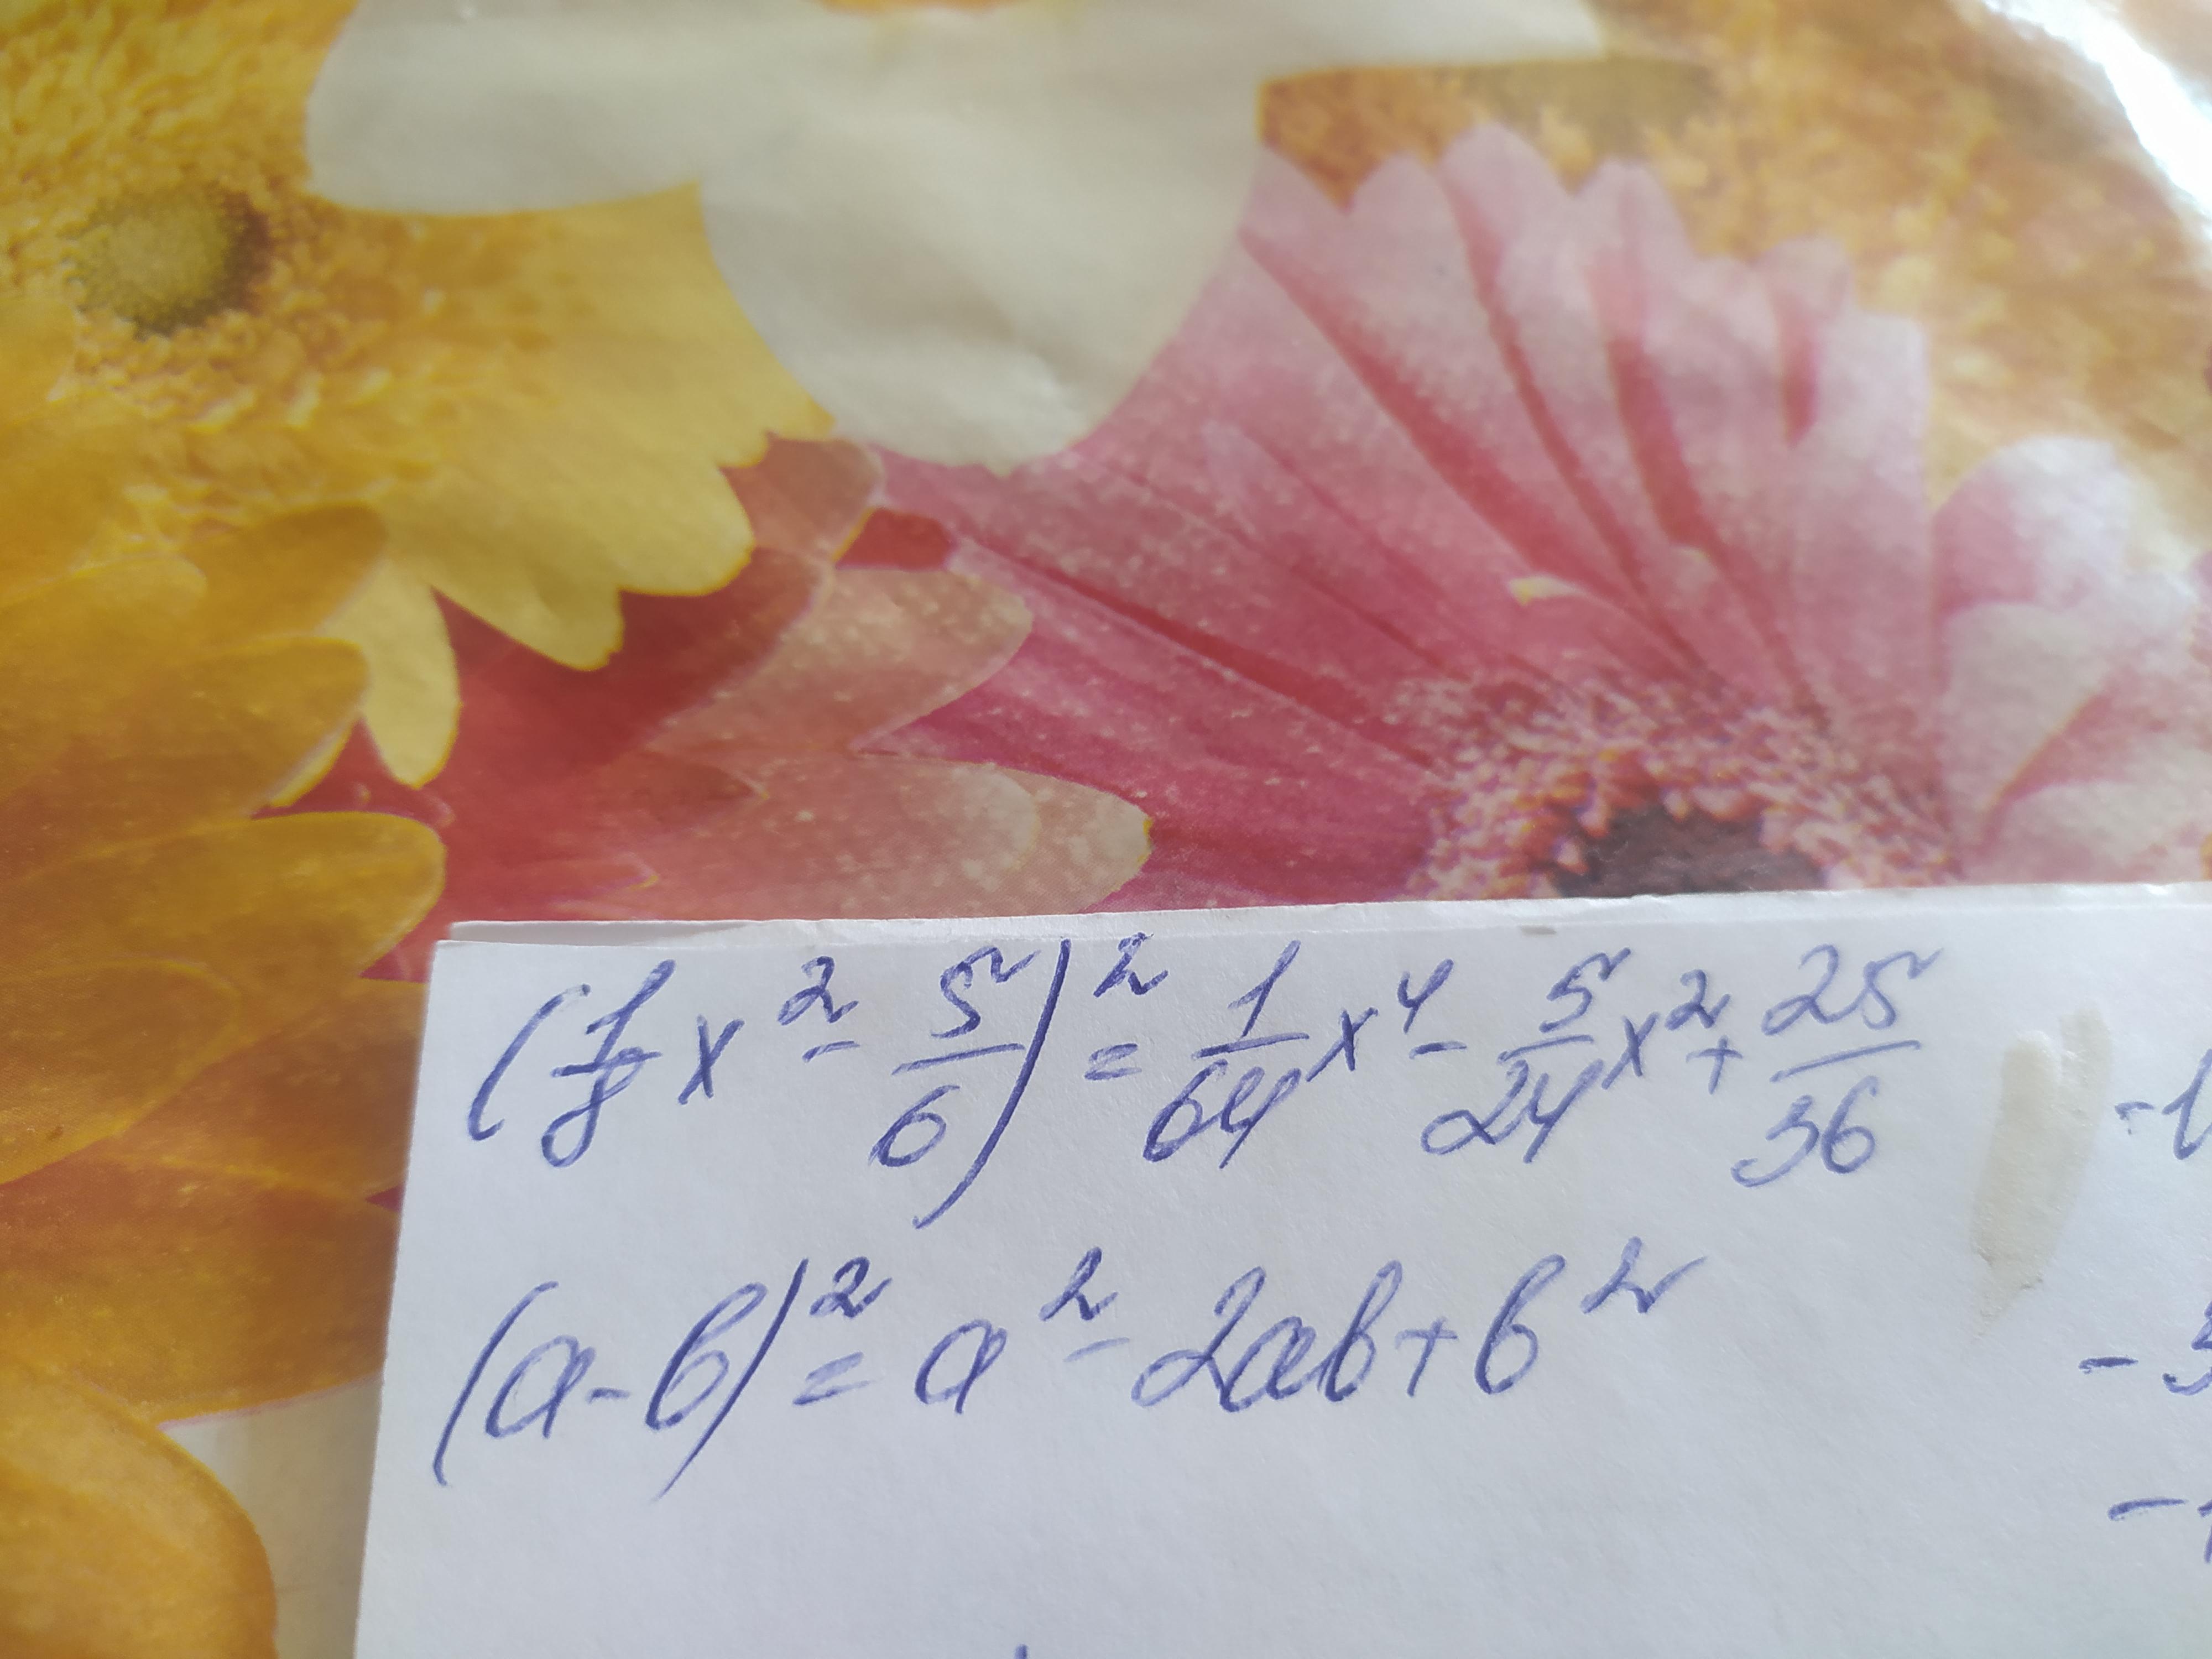 (1/8 x² - 5/6)² = 1/64 x⁴ - 5/24 x² + 25/36
(a-b)² = a² - 2ab + b²